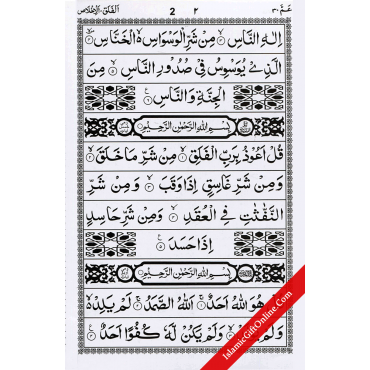 عَمَّ ٣٠ 2 ٢ الفلق، الاخلاص
اِلٰهِ النَّاسِ ۙ مِنْ شَرِّ الْوَسْوَاسِ ۙ الْخَنَّاسِ ۙ
الَّذِیْ یُوَسْوِسُ فِیْ صُدُوْرِ النَّاسِ ۙ مِنَ
الْجِنَّةِ وَالنَّاسِ
بِسْمِ اللّٰهِ الرَّحْمٰنِ الرَّحِیْمِ
قُلْ اَعُوْذُ بِرَبِّ الْفَلَقِ ۙ مِنْ شَرِّ مَا خَلَقَ ۙ
وَمِنْ شَرِّ غَاسِقٍ اِذَا وَقَبَ ۙ وَمِنْ شَرِّ
النَّفّٰثٰتِ فِی الْعُقَدِ ۙ وَمِنْ شَرِّ حَاسِدٍ
اِذَا حَسَدَ
بِسْمِ اللّٰهِ الرَّحْمٰنِ الرَّحِیْمِ
هُوَ اللّٰهُ اَحَدٌ ۚ اَللّٰهُ الصَّمَدُ ۚ لَمْ یَلِدْ ۙ
وَلَمْ وَلَمْ یَكُنْ لَّهٗ كُفُوًا اَحَدٌ
IslamicGiftOnline.Com